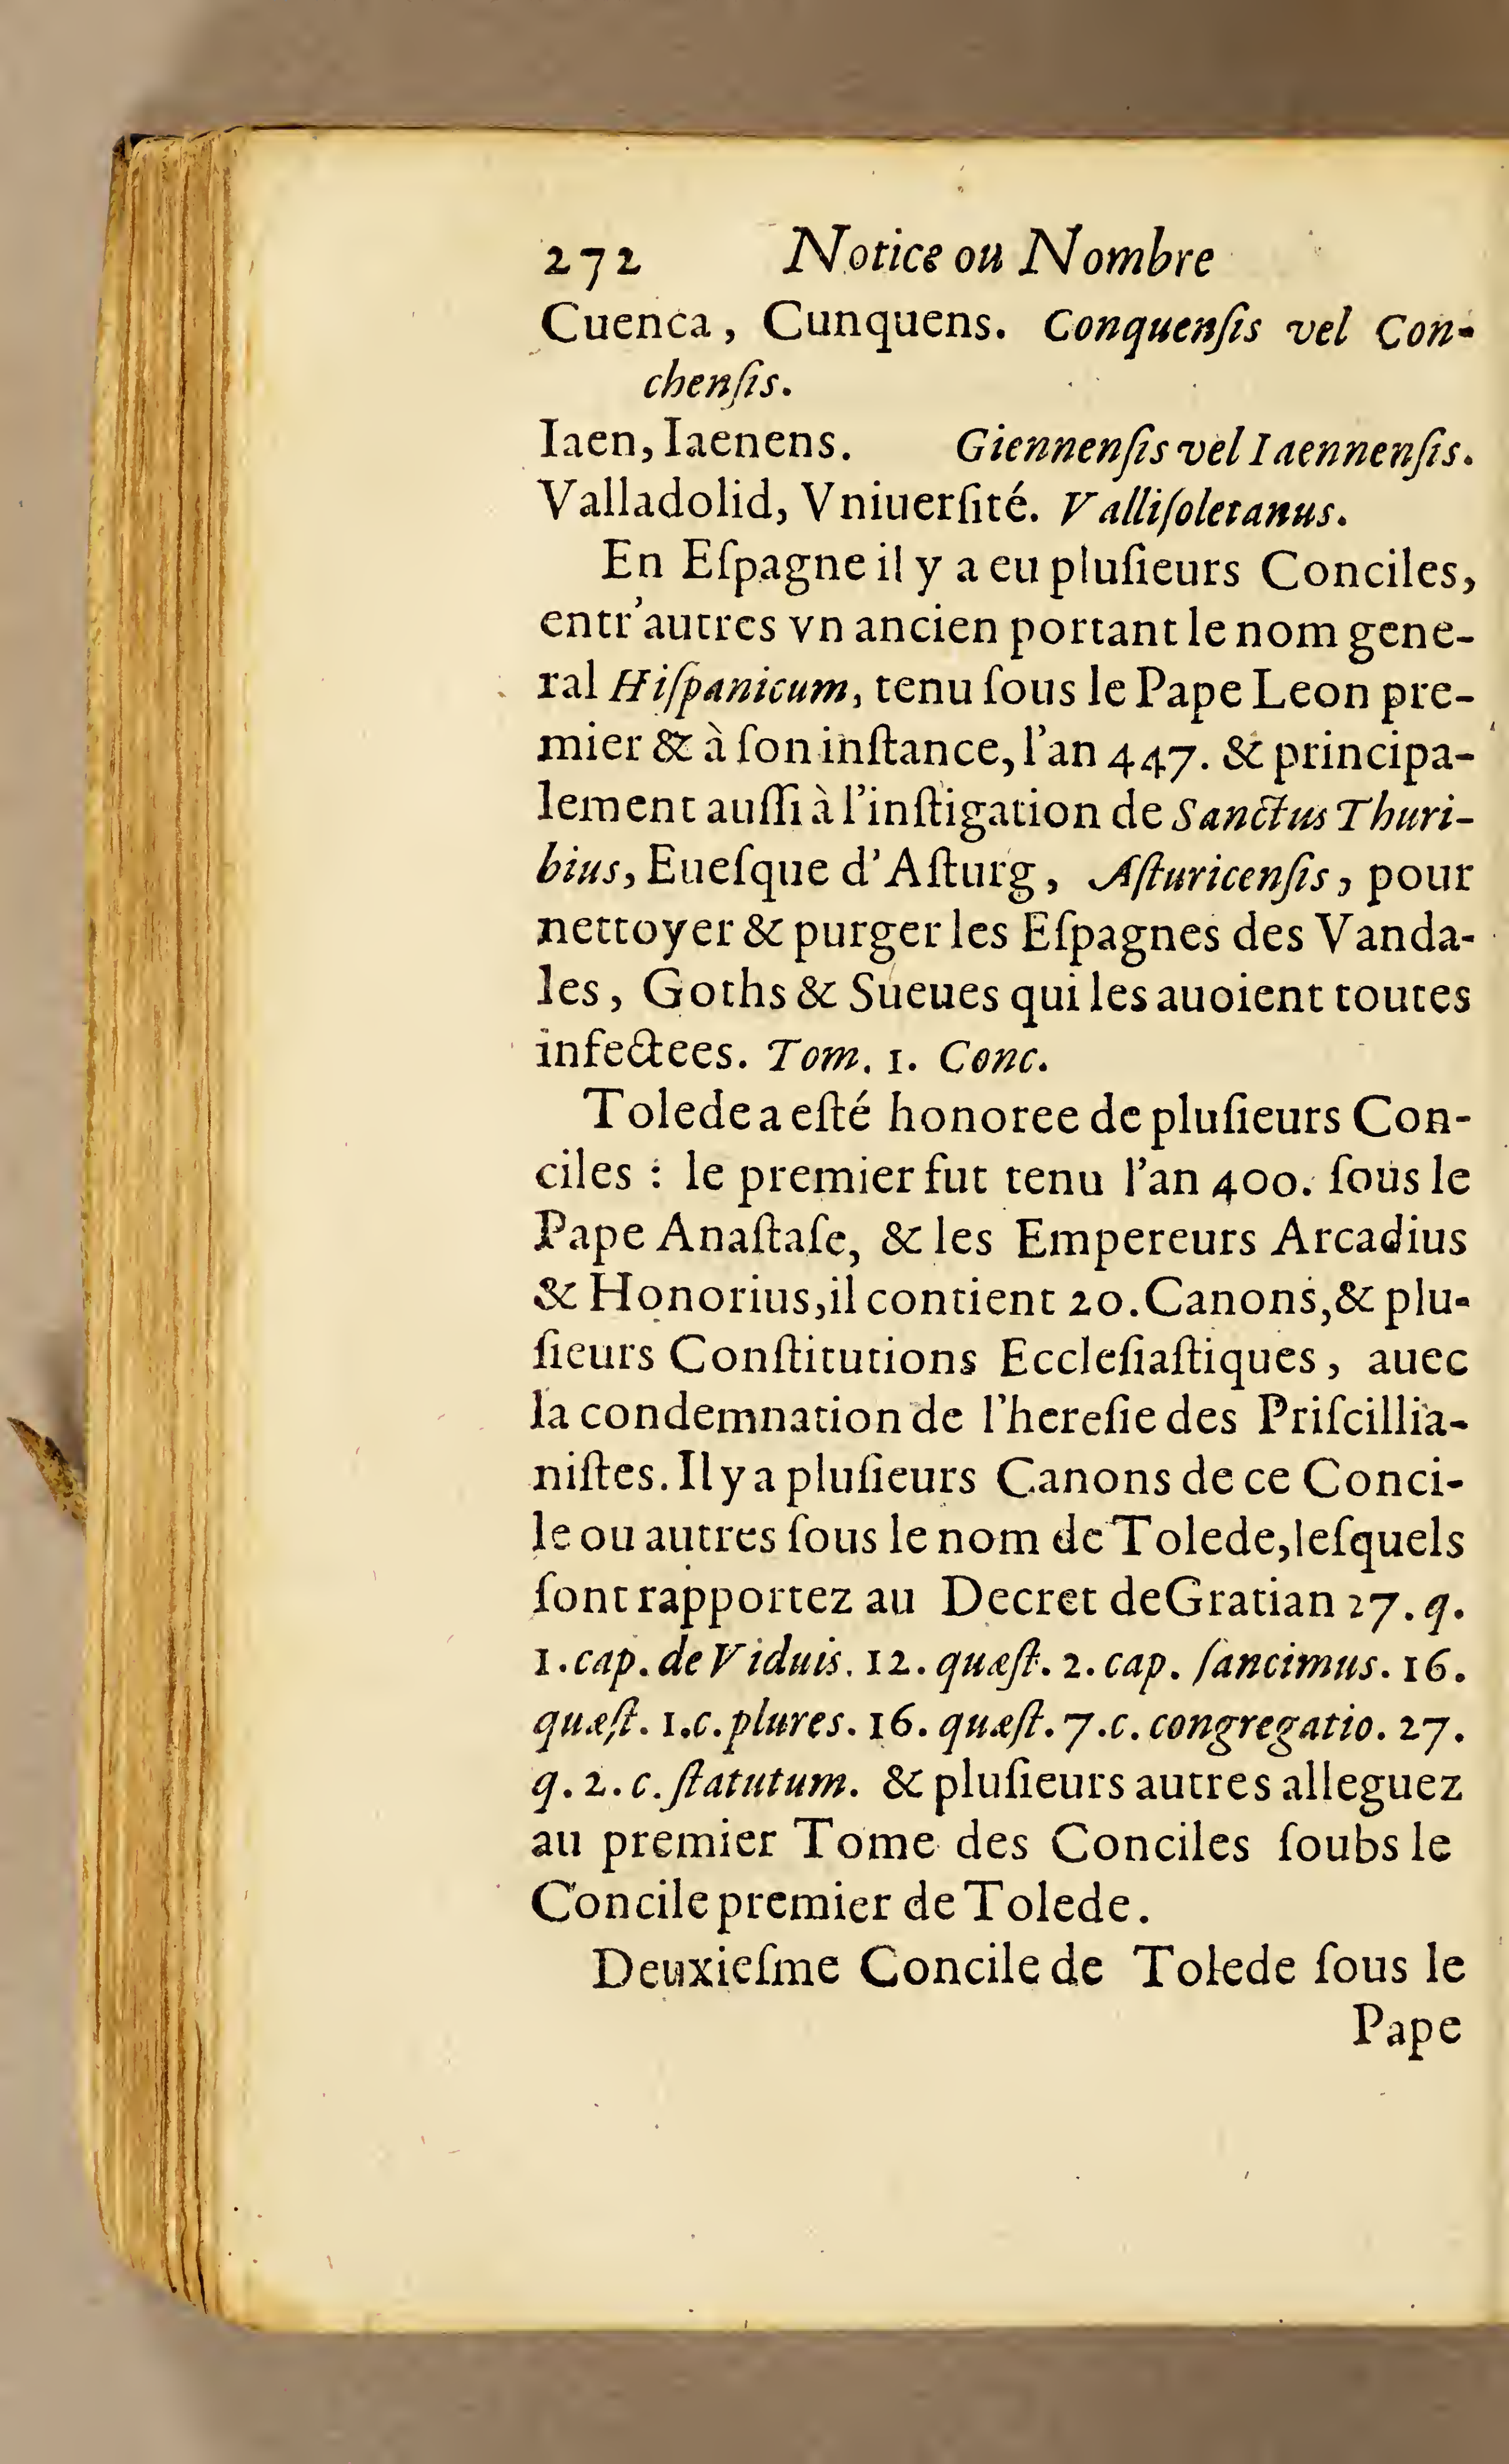 272 Notice ou Nombre
Cuenca, Cunquens. Conquenſis vel Con-
chenſis.
Iaen, Iaenens. Giennenſis vel Iaennenſis.
Valladolid, Vniuerſité. Valliſoletanus.
En Eſpagne il y a eu pluſieurs Conciles,
entr'autres vn ancien portant le nom gene-
ral Hiſpanicum, tenu ſous le Pape Leon pre-
mier & à ſon inſtance, l'an 447. & principa-
lement auſſi à l'inſtigation de Sanctus Thuri-
bius, Eueſque d'Aſturg, Aſturicenſis, pour
nettoyer & purger les Eſpagnes des Vanda-
les, Goths & Sueues qui les auoient toutes
infectees. Tom. 1. Conc.
Tolede a eſté honoree de pluſieurs Con-
ciles : le premier fut tenu l'an 400. ſous le
Pape Anaſtaſe, & les Empereurs Arcadius
& Honorius, il contient 20. Canons, & plu-
ſieurs Conſtitutions Eccleſiaſtiques, auec
la condemnation de l'hereſie des Priſcillia-
niſtes. Il y a pluſieurs Canons de ce Conci-
le ou autres ſous le nom de Tolede, leſquels
ſont rapportez au Decret de Gratian 27. q.
1. cap. de Viduis. 12. quæſt. 2. cap. ſancimus. 16.
quæſt. 1. c. plures. 16. quæſt. 7. c. congregatio. 27.
q. 2. c. ſtatutum. & pluſieurs autres alleguez
au premier Tome des Conciles ſoubs le
Concile premier de Tolede.
Deuxieſme Concile de Tolede ſous le
Pape